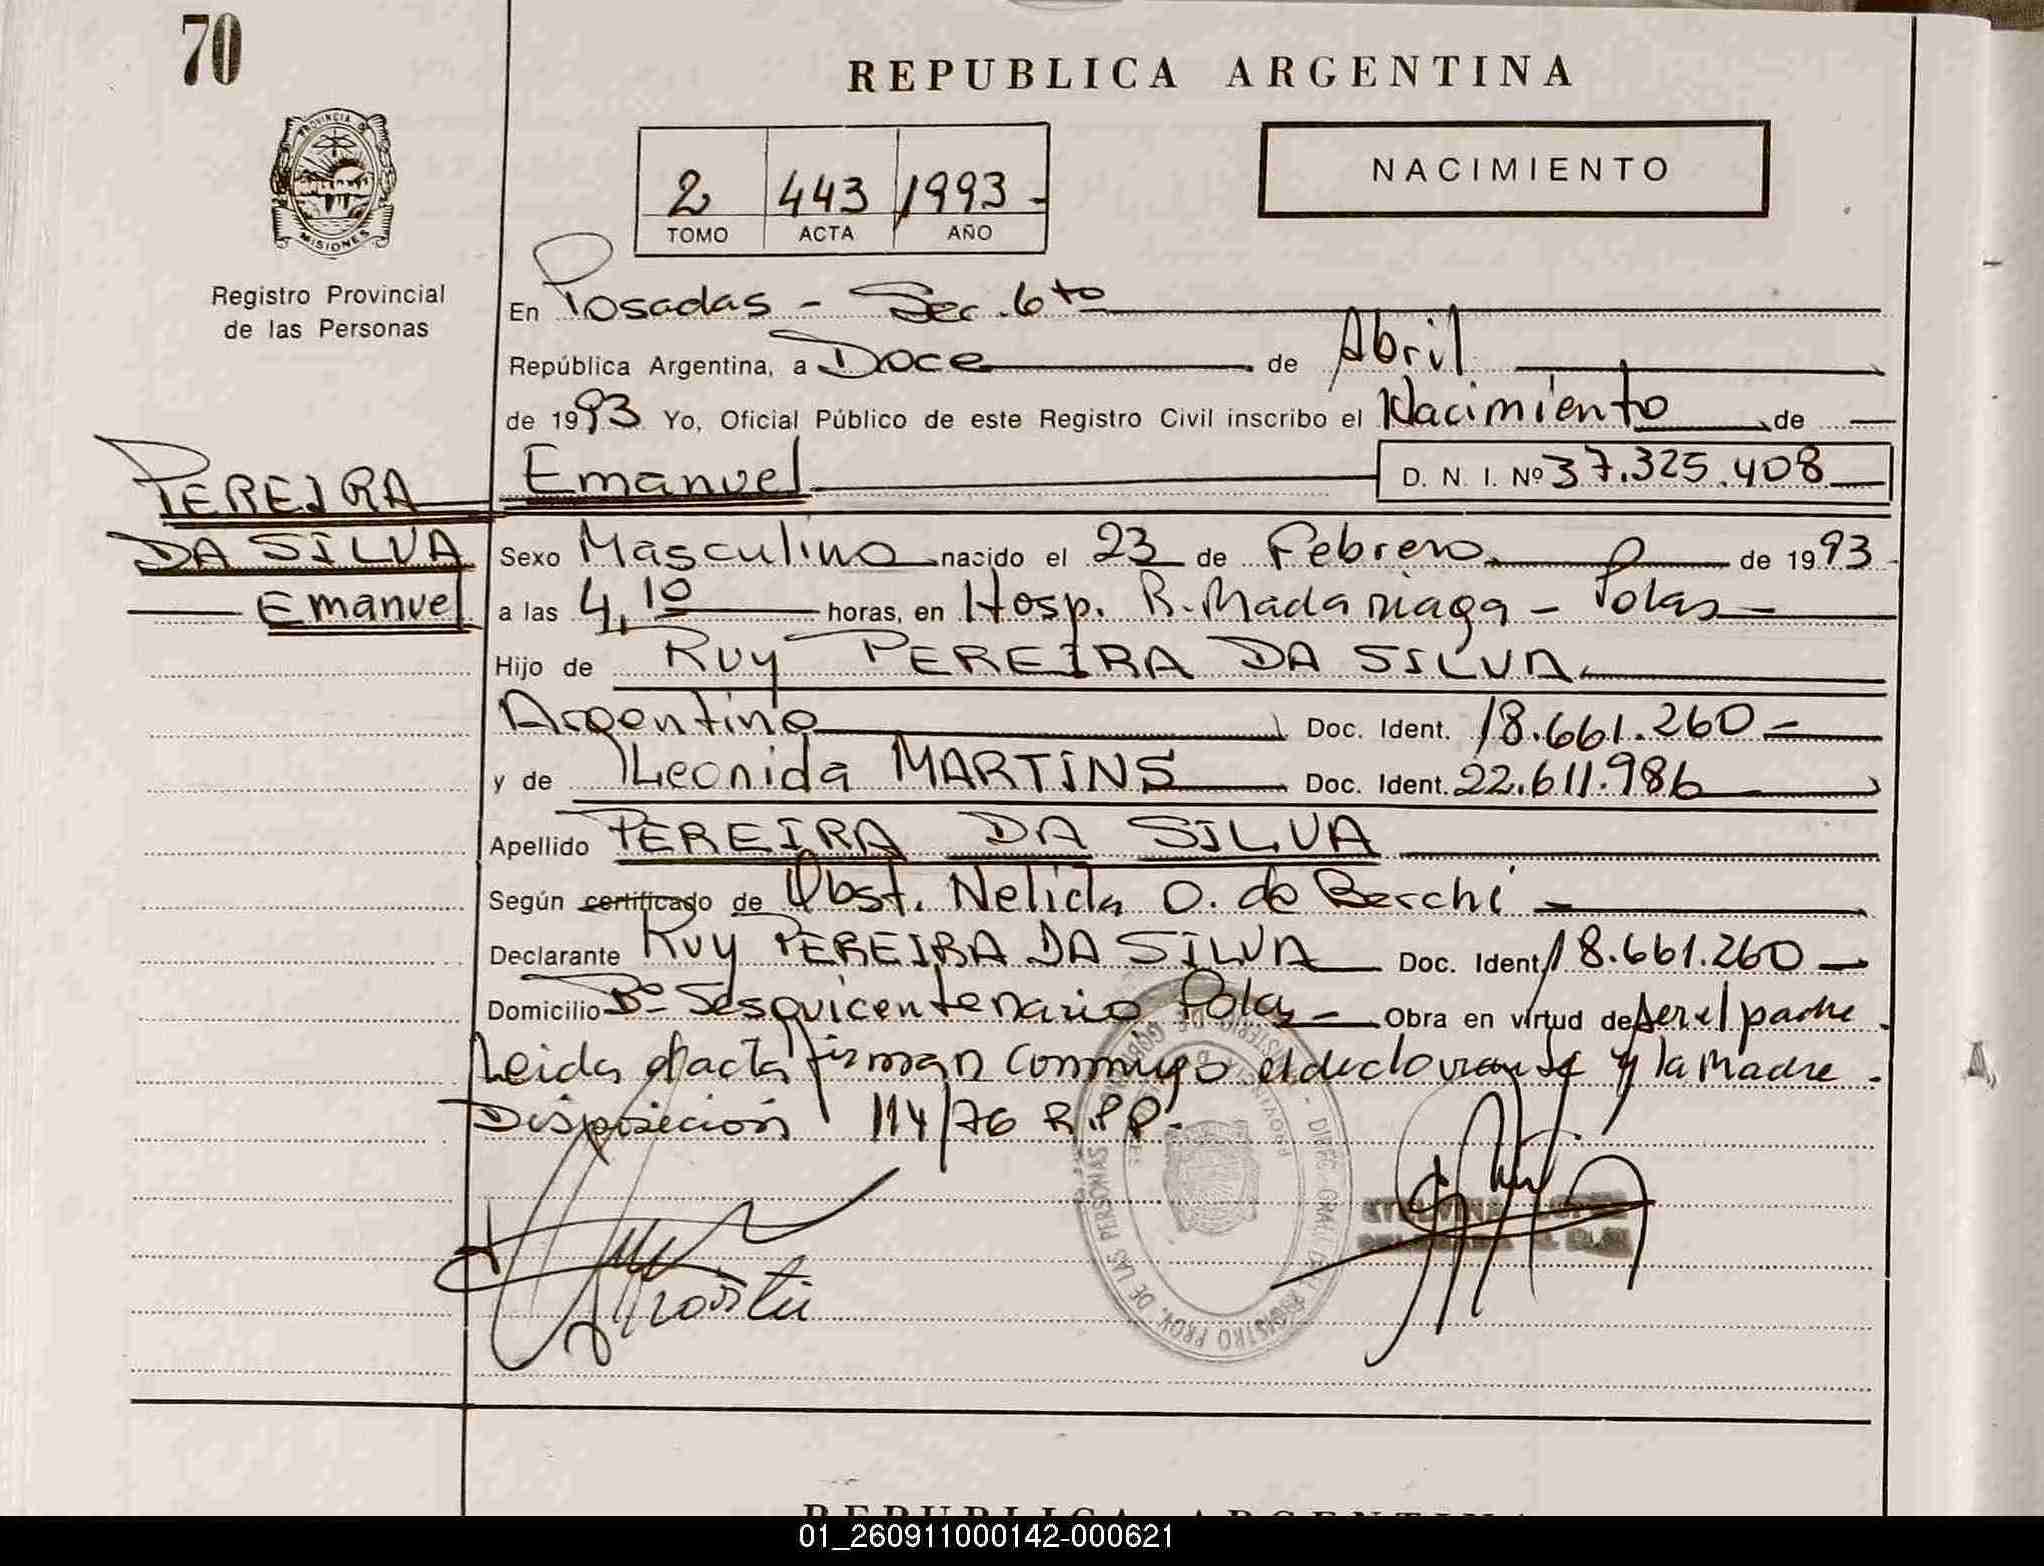 70
REPUBLICA ARGENTINA
PROVINCIA DE
MISIONES
Registro Provincial
de las Personas
NACIMIENTO
2 443 1993-
TOMO ACTA AÑO
En Posadas - Sec. 6to
República Argentina, a Doce de Abril
de 1993 Yo, Oficial Público de este Registro Civil inscribo el Nacimiento de
PEREIRA Emanuel D. N. I. Nº 37.325.408
DA SILVA Sexo Masculino nacido el 23 de Febrero de 1993
Emanuel a las 4,10 horas, en Hosp. R. Madariaga - Pdas -
Hijo de Ruy PEREIRA DA SILVA
Argentino Doc. Ident. 18.661.260
y de Leonida MARTINS Doc. Ident. 22.611.986
Apellido PEREIRA DA SILVA
Según certificado de Obst. Nelida O. de
Declarante Ruy PEREIRA DA SILVA Doc. Ident. 18.661.260
Domicilio Bº Sesquicentenario Pdas - Obra en virtud de ser el padre.
Leida el acta firman conmigo el declarante y la Madre.
Disposición 114/76 R.P.P.
REGISTRO PROV. DE LAS PERSONAS
REPUBLICA ARGENTINA
01_260911000142-000621